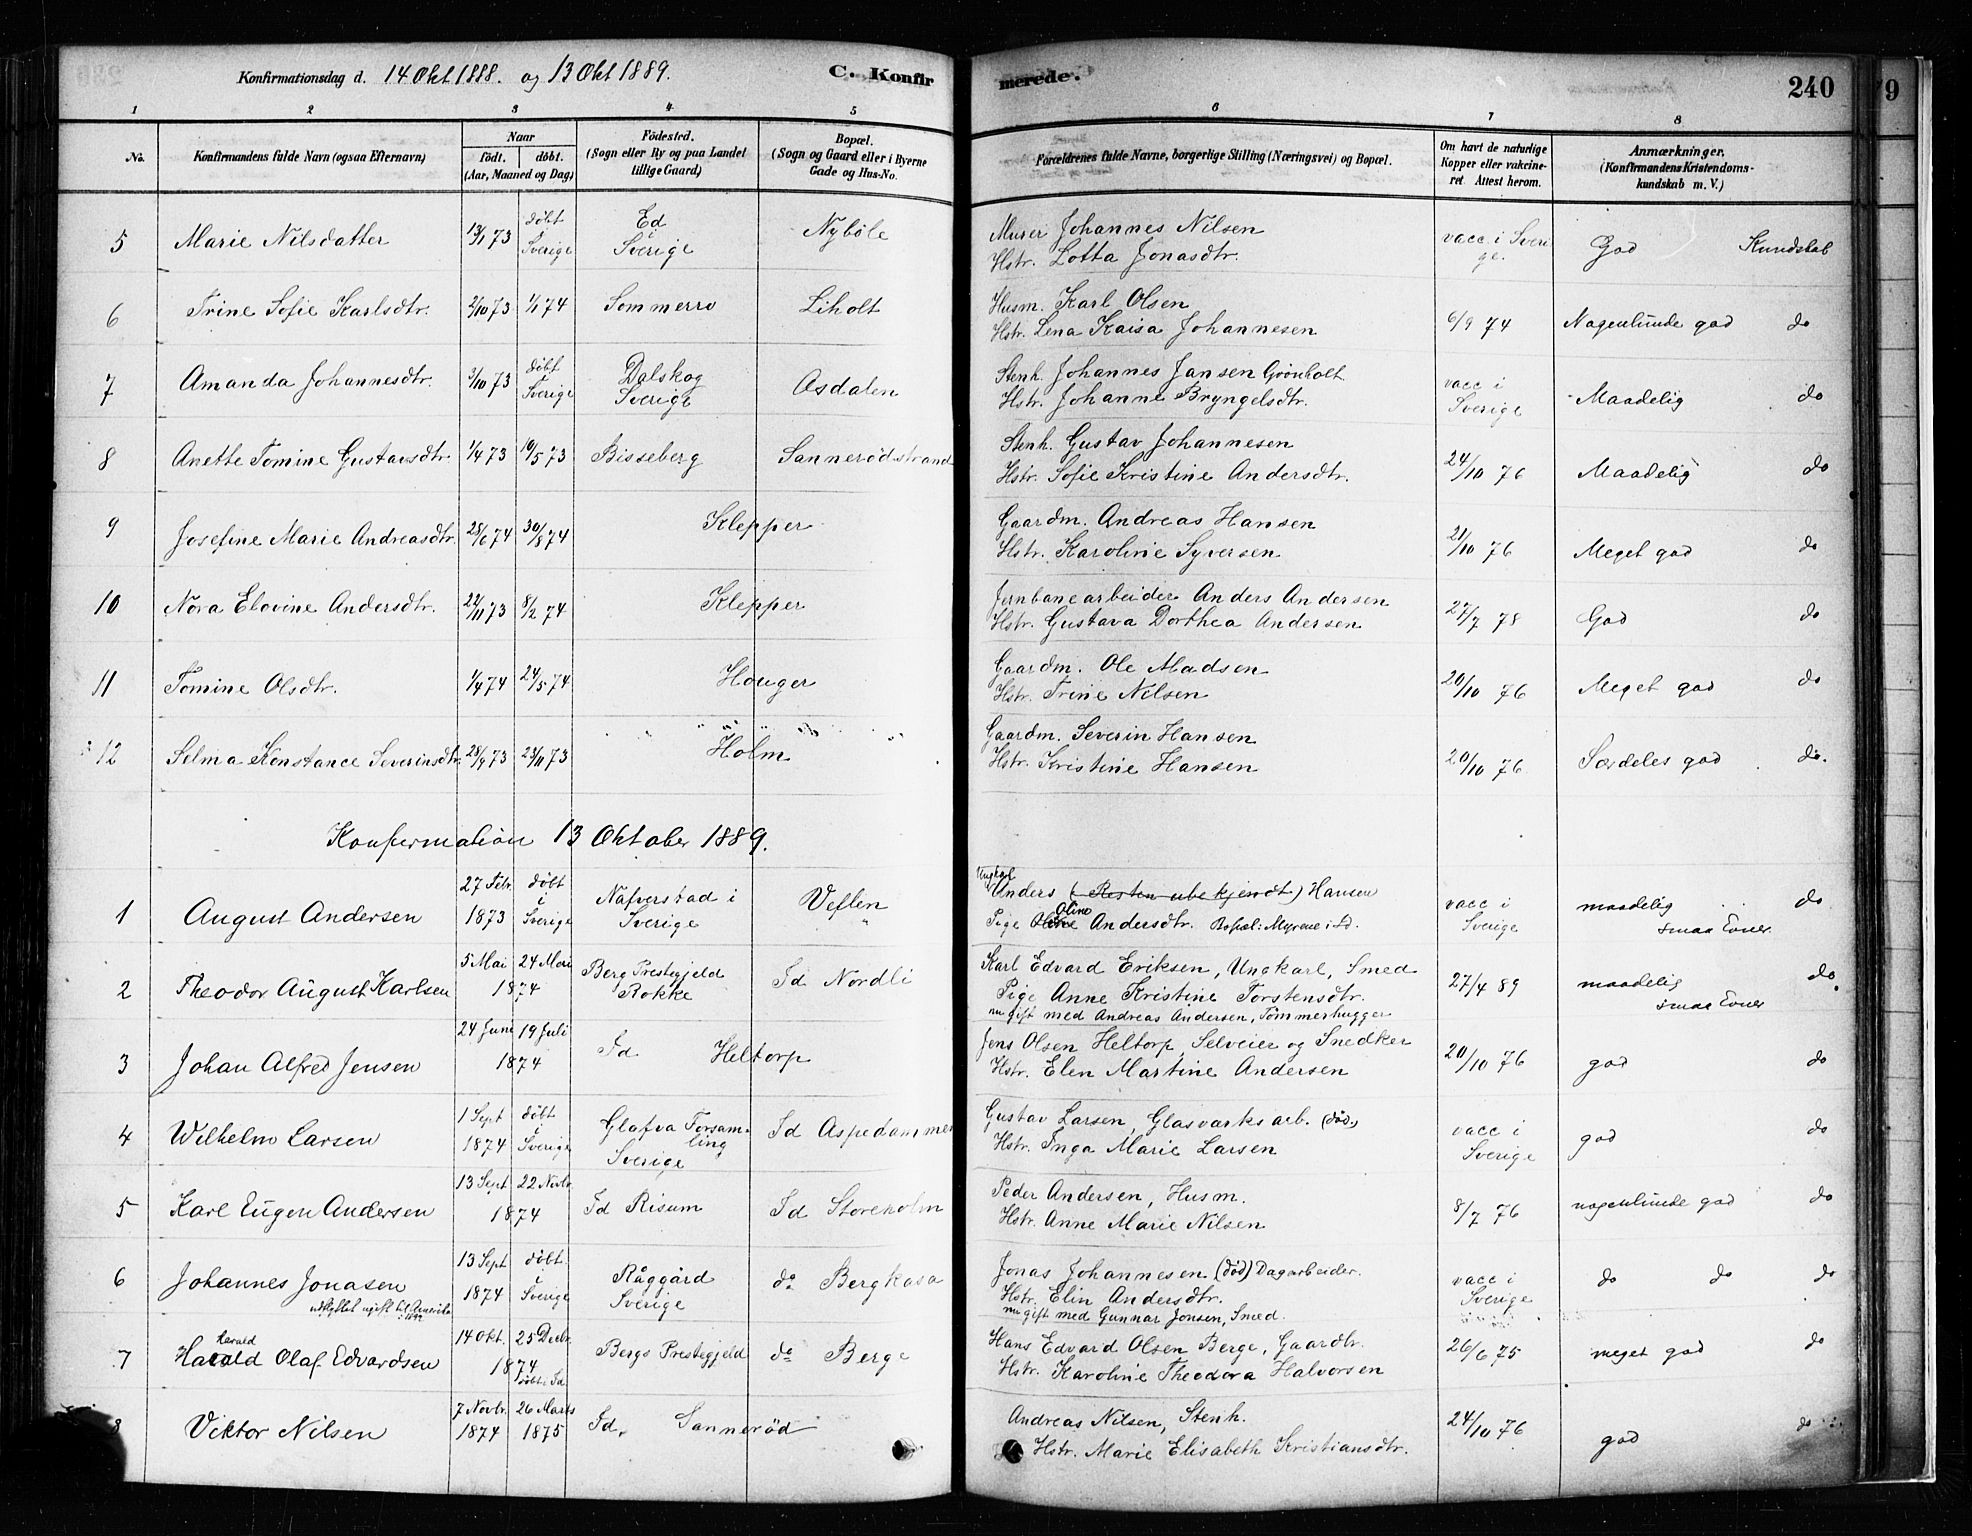 Konfirmationsdag d. 14 Okt 1888. og 13 Okt 1889. C. Konfirmerede. 240
1 2 3 4 5 6 7 8
No. Konfirmandens fulde Navn (ogsaa Efternavn) Naar født. døbt. (Aar, Maaned og Dag) Fødested. (Sogn eller By og paa Landet tillige Gaard) Bopæl. (Sogn og Gaard eller i Byerne Gade og Hus-No. Forældrenes fulde Navne, borgerlige Stilling (Næringsvei) og Bopæl. Om havt de naturlige Kopper eller vakcineret Attest herom. Anmærkninger, (Konfirmandens Kristendomskundskab m. V.)
5 Marie Nilsdatter 13/1 73 døbt i Sverige Ed i Sverige Nybøle Murer Johannes Nilsen Hstr. Lotta Jonasdtr. vacc i Sverige. God Kundskab
6 Trine Sofie Karlsdtr. 2/10 73 1/1 74 Sommerro Liholt Husm. Karl Olsen Hstr. Lena Kaisa Johannesen 6/9 74 Nogenlunde god do
7 Amanda Johannesdtr. 3/10 73 døbt i Sverige Dalskog Sverige Asdalen Stenh. Johannes Jansen Grønholt Hstr. Johanne Bryngelsdtr. vacc i Sverige Maadelig do
8 Anette Tomine Gustavsdtr. 1/4 73 10/5 73 Bisseberg Sannerødstrand Stenh. Gustav Johannesen Hstr. Sofie Kristine Andersdtr. 24/10 76 Maadelig do
9 Josefine Marie Andreasdtr. 28/6 74 30/8 74 Klepper Gaardm. Andreas Hansen Hstr. Karoline Syversen 21/10 76 Meget god do
10 Nora Elovine Andersdtr. 22/11 73 8/2 74 Klepper Jernbanearbeider Anders Andersen Hstr. Gustava Dorthea Andersen 27/7 78 God do
11 Tomine Olsdtr. 1/4 74 24/5 74 Houger Gaardm. Ole Madsen Hstr. Trine Nilsen 20/10 76 Meget god do
12 Selma Konstance Severinsdtr. 28/9 73 23/11 73 Holm Gaardm. Severin Hansen Hstr. Kristine Hansen 20/10 76 Særdeles god do.
Konfirmation 13 Oktober 1889.
1 August Andersen 27 Febr. 1873 døbt i Sverige Nafverstad i Sverige Veflen Ungkarl Anders (Resten ubekjendt) Hansen Pige Oline Andersdtr. Bopæl: Myrene i Id. vacc i Sverige maadelig do smaa Evner
2 Theodor August Karlsen 5 Mai 24 Mai 1874 Berg Prestegjeld Rokke Id Nordli Karl Edvard Eriksen, Ungkarl, Smed Pige Anne Kristine Torstensdtr. nu gift med Andreas Andersen, Tømmerhugger 27/4 89 maadelig do smaa Evner
3 Johan Alfred Jensen 24 Juni 19 Juli 1874 Id Heltorp Jens Olsen Heltorp, Selveier og Snedker Hstr. Elen Martine Andersen 20/10 76 god do
4 Wilhelm Larsen 1 Sept 1874 døbt i Sverige Glafva Forsamling Sverige Id Aspedammen Gustav Larsen, Glasværksarb. (død) Hstr. Inga Marie Larsen vacc i Sverige god do
5 Karl Eugen Andersen 13 Sept 22 Novbr. 1874 Id Risum Id Storeholm Peder Andersen, Husm. Hstr. Anne Marie Nilsen 8/7 76 nogenlunde god do
6 Johannes Jonasen 13 Sept 1874 døbt i Sverige Råggärd Sverige do Bergkasa Jonas Johannesen (død) Dagarbeider. Hstr. Elin Andersdtr. nu gift med Gunnar Jonsen, Smed. vacc i Sverige do do do
udflyttet ugift til Amerika
7 Harald Harald Olaf Edvardsen 14 Okt. 25 Decbr. 1874 døbt i Id Bergs Prestegjeld do Berge Hans Edvard Olsen Berge, Gaardbr. Hstr. Karoline Theodora Halvorsen 26/6 75 meget god do
8 Viktor Nilsen 7 Novbr. 1874 26 Marts 1875 Id, Sannerød Andreas Nilsen, Stenh. Hstr. Marie Elisabeth Kristiansdtr. 24/10 76 god do